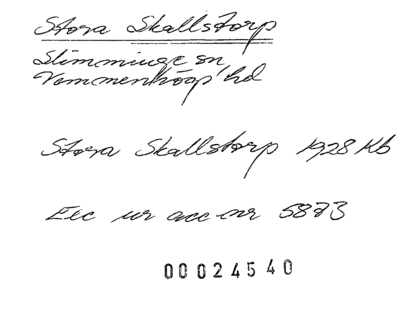 Stora Skallstorp
Slimminge sn
Vemmenhögs hd
Stora Skallstorp 1928 Kb
Exc ur acc nr 5873
00024540